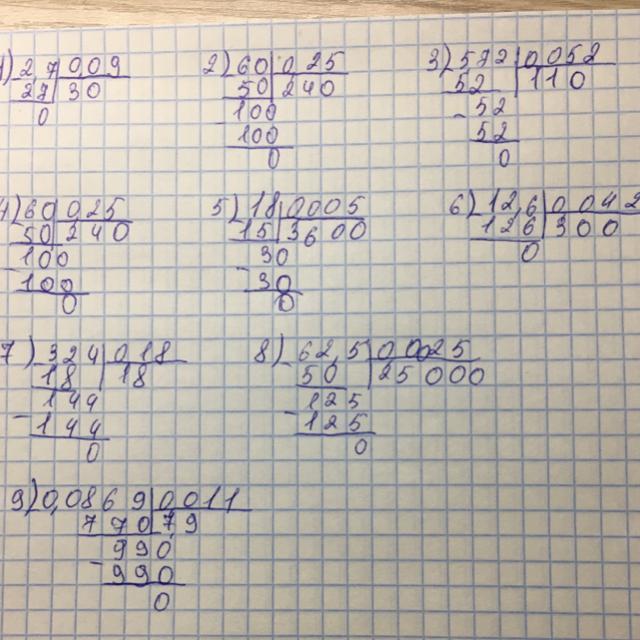 1) 2,7 0,09
27 30
0
2) 60 0,25
50 240
100
100
0
3) 5,72 0,052
52 110
52
52
0
4) 60 0,25
50 240
100
100
0
5) 18 0,005
15 3600
30
30
0
6) 12,6 0,042
126 300
0
7) 3,24 0,18
18 18
144
144
0
8) 62,5 0,0025
50 25000
125
125
0
9) 0,0869 0,011
770 79
990
990
0